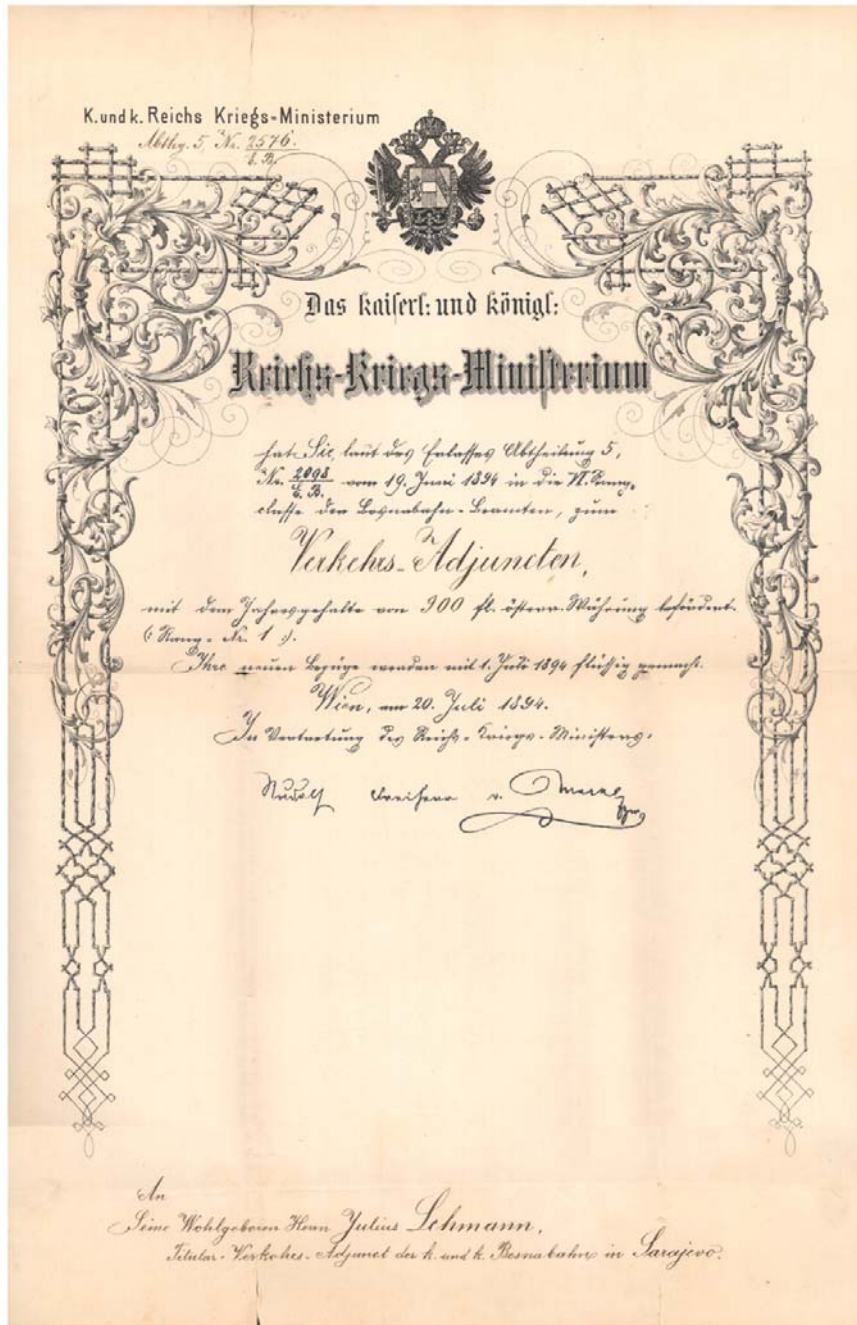 K. und k. Reichs Kriegs-Ministerium
Abthg. 5, Nr. 2576.
E. B.
Das kaiserl: und königl:
Reichs-Kriegs-Ministerium
hat Sie, laut des Erlasses Abtheilung 5,
Nr. 2098 / E. B. vom 19. Juni 1894 in die VI. Rang-
classe der Bosnabahn-Beamten, zum
Verkehrs-Adjuncten,
mit dem Jahresgehalte von 900 fl. österr. Währung befördert.
(: Rang-Nr. 1 :).
Ihre neuen Bezüge werden mit 1. Juli 1894 flüssig gemacht.
Wien, am 20. Juli 1894.
In Vertretung des Reichs-Kriegs-Ministers:
Rudolf Freiherr v.
An
Seine Wohlgeboren Herrn Julius Lehmann,
Titular-Verkehrs-Adjunct der k. und k. Bosnabahn in Sarajevo.